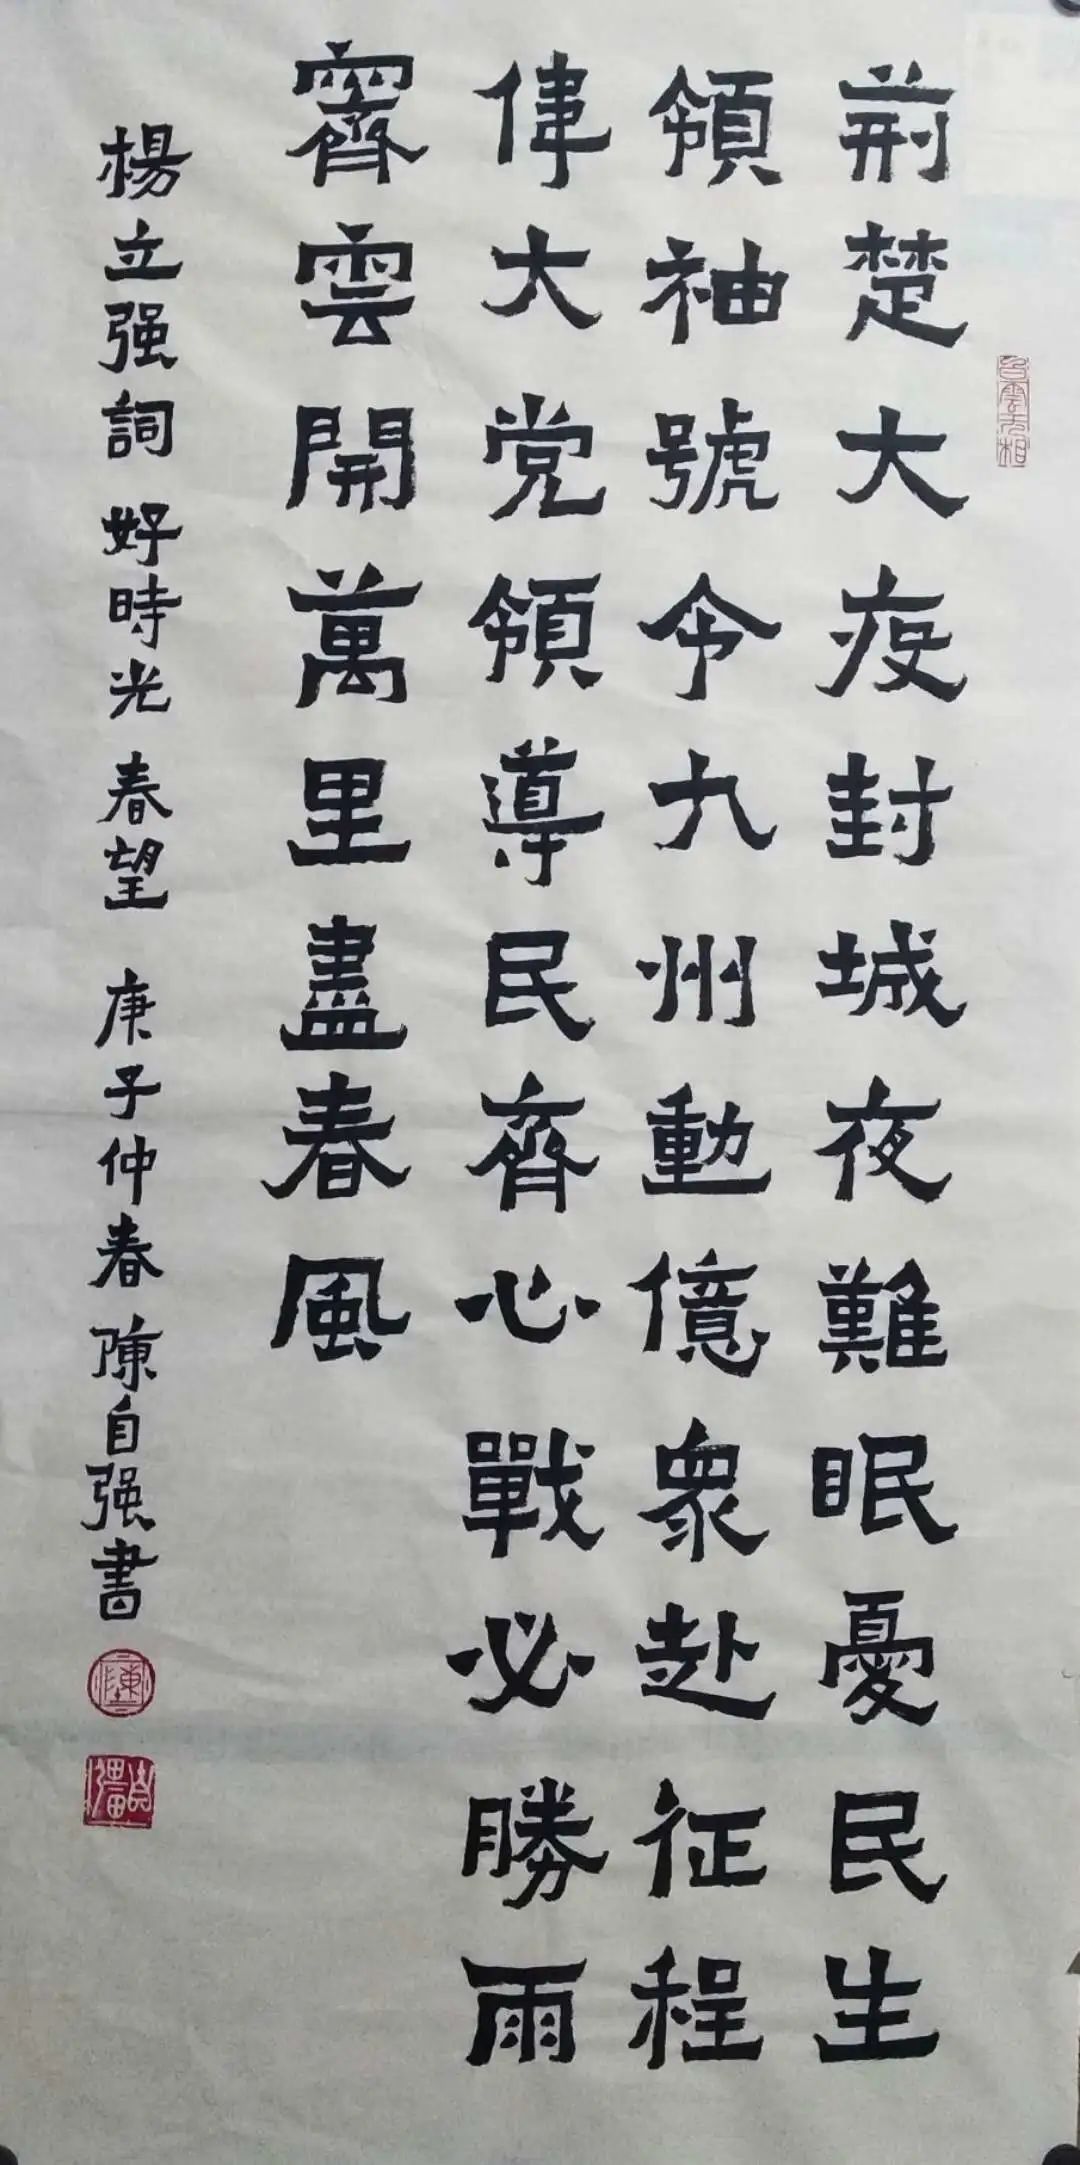 荊楚大疫封城夜難眠憂民生
領袖號令九州動億衆赴征程
偉大党領導民齊心戰必勝雨
霽雲開萬里盡春風
楊立强詞 好時光 春望 庚子仲春 陳自强書